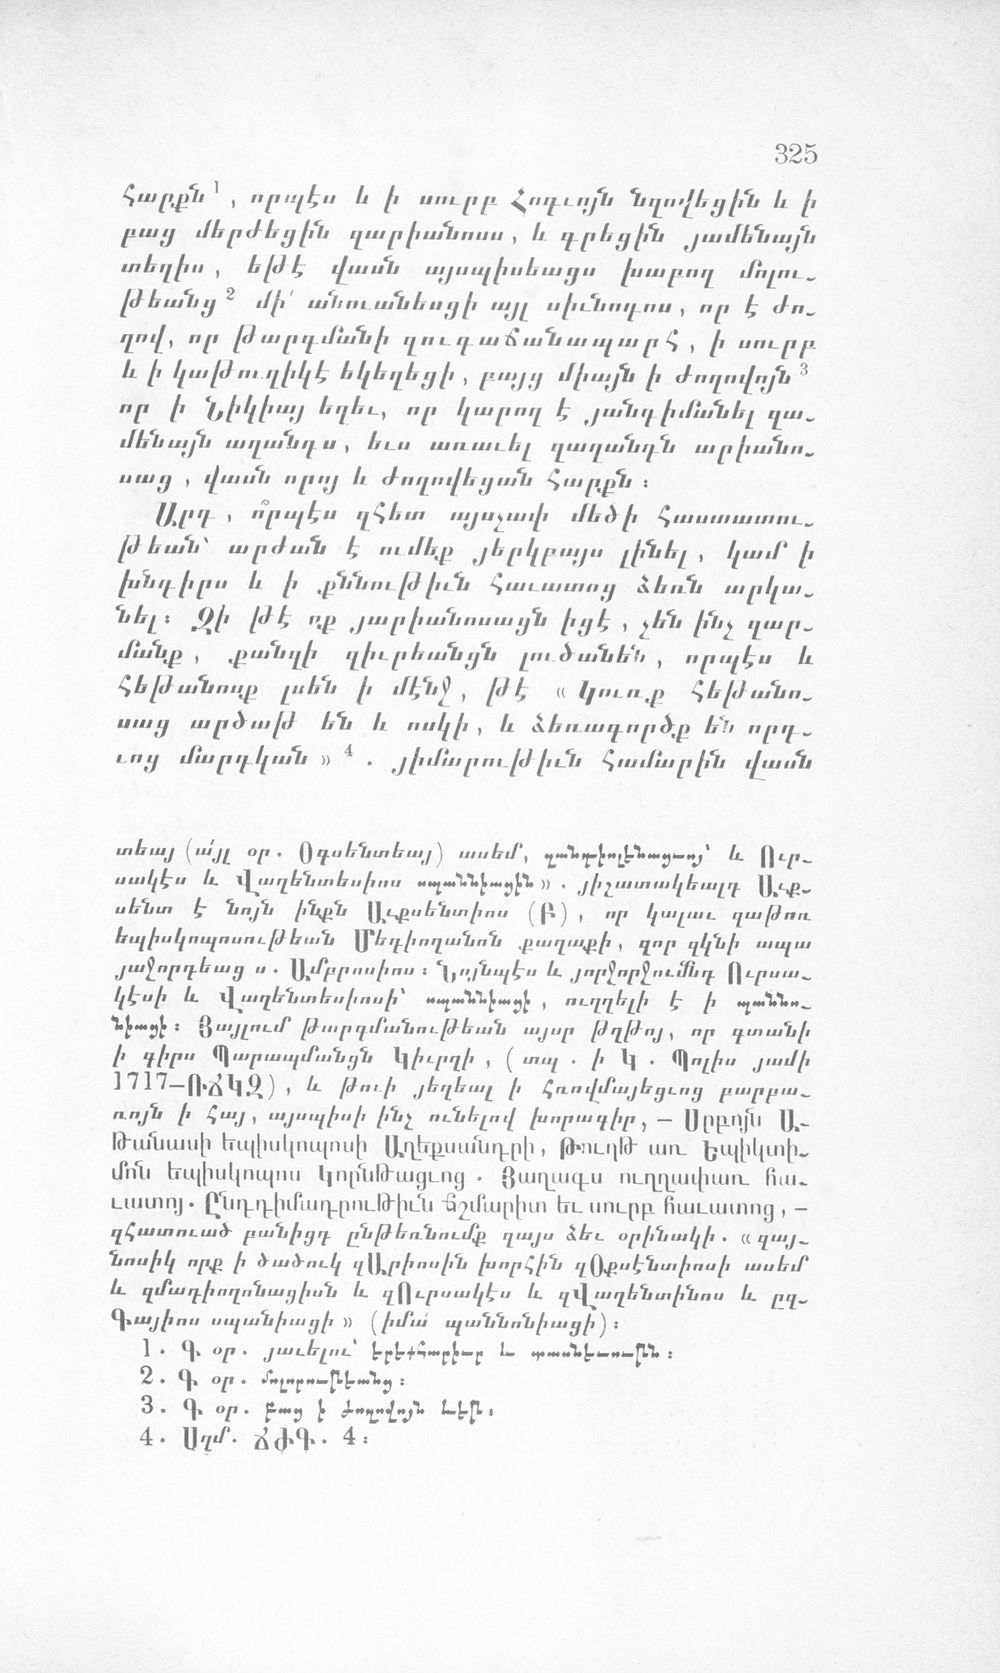 325
հարքն 1, որպէս և ի սուրբ Հոգւոյն նզովեցին և ի
բաց մերժեցին զարիանոսս, և գրեցին յամենայն
տեղիս, եթէ վասն այսպիսեացս խաբող մոլու-
թեանց 2 մի՛ անուանեսցի այլ սիւնոդոս, որ է ժո-
ղով, որ թարգմանի զուգաճանապարհ, ի սուրբ
և ի կաթուղիկէ եկեղեցի, բայց միայն ի ժողովոյն 3
որ ի Նիկիայ եղեւ, որ կարող է յանդիմանել զա-
մենայն աղանդս, եւս առաւել զաղանդն արիանո-
սաց, վասն որոյ և ժողովեցան հարքն։
Արդ, ո՞րպէս զհետ այսչափ մեծի հաստատու-
թեան՝ արժան է ումեք յերկբայս լինել, կամ ի
խնդիրս և ի քննութիւն հաւատոց ձեռն արկա-
նել։ Զի թէ ոք յարիանոսացն իցէ, չեն ինչ զար-
մանք, քանզի զիւրեանցն լուծանեն, որպէս և
հեթանոսք լսեն ի մէնջ, թէ « Կուռք հեթանո-
սաց արծաթ են և ոսկի, և ձեռագործք են որդ-
ւոց մարդկան » 4. յիմարութիւն համարին վասն
տեայ (ա՛յլ օր. Օգսենտեայ) ասեմ, զանդիոլենացւոյ՝ և Ուր-
սակէս և Վաղենտեսիոս սպաննիացին». յիշատակեալդ Աւք-
սենտ է նոյն ինքն Աւքսենտիոս (Բ), որ կալաւ զաթոռ
եպիսկոպոսութեան Մեդիողանոն քաղաքի, զոր զկնի ապա
յաջորդեաց ս. Ամբրոսիոս։ Նոյնպէս և յորջորջումնդ Ուրսա-
կէսի և Վաղենտեսիոսի՝ սպաննիացի, ուղղելի է ի պաննո-
նիացի։ Յայլում թարգմանութեան այսր թղթոյ, որ գտանի
ի գիրս Պարապմանցն Կիւրղի, (տպ. ի Կ. Պոլիս յամի
1717—ՌՃԿԶ), և թուի յեղեալ ի Հռովմայեցւոց բարբա-
ռոյն ի Հայ, այսպիսի ինչ ունելով խորագիր, — Սրբոյն Ա-
թանասի եպիսկոպոսի Աղեքսանդրի, Թուղթ առ Եպիկտի-
մոն եպիսկոպոս Կորնթացւոց. Յաղագս ուղղափառ հա-
ւատոյ. Ընդդիմադրութիւն ճշմարիտ եւ սուրբ հաւատոց, —
զհատուած բանիցդ ընթեռնումք զայս ձեւ օրինակի. « զայ-
նոսիկ որք ի ծածուկ զԱրիոսին խորհին զՕքսէնտիոսի ասեմ
և զմադիողոնացիսն և զՈւրսակէս և զՎաղենտինոս և ըզ-
Գայիոս սպանիացի » (իմա՛ պաննոնիացի)։
1. Գ օր. յաւելու՝
2. Գ օր. մոլորութեանց։
3. Գ օր. բաց ի ժողովոյն
4. Սղմ. ՃԺԳ. 4։